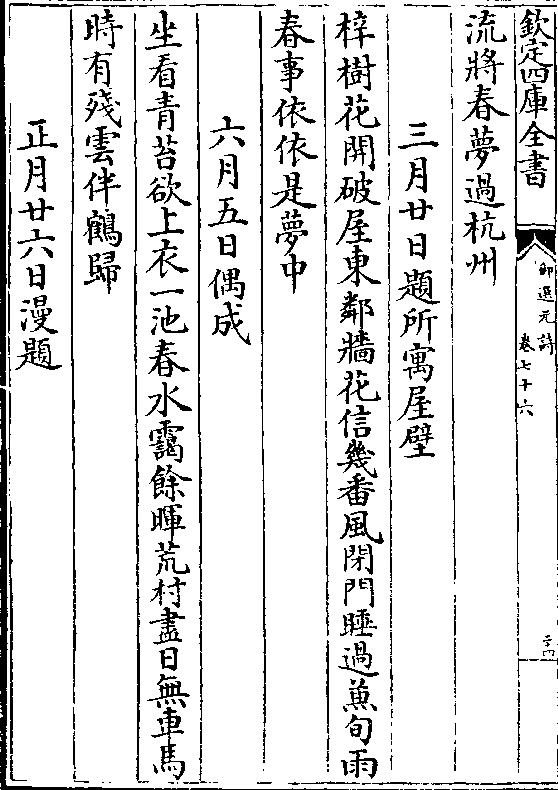 欽定四庫全書
御選元詩
卷七十六
二十四
流將春夢過杭州
三月廿日題所寓屋壁
梓樹花開破屋東鄰牆花信幾番風閉門睡過兼旬雨
春事依依是夢中
六月五日偶成
坐看青苔欲上衣一池春水靄餘暉荒村盡日無車馬
時有殘雲伴鶴歸
正月廿六日漫題